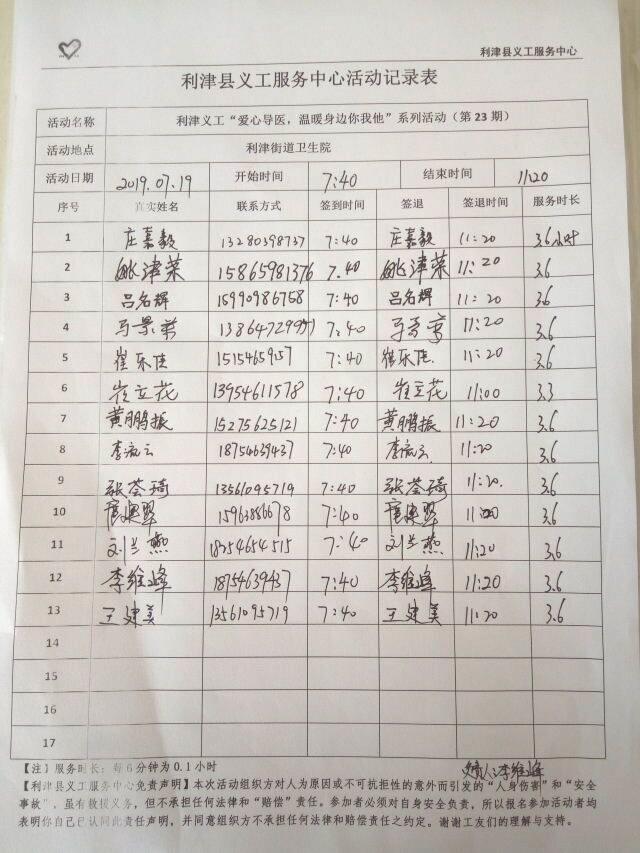 利津县义工服务中心
利津县义工服务中心活动记录表
活动名称 利津义工“爱心导医，温暖身边你我他”系列活动（第23期）
活动地点 利津街道卫生院
活动日期 2019.07.19 开始时间 7:40 结束时间 11:20
序号 真实姓名 联系方式 签到时间 签退 签退时间 服务时长
1 庄嘉毅 13280398737 7:40 庄嘉毅 11:20 3.6小时
2 姚津荣 15865981376 7.40 姚津荣 11:20 3.6
3 吕名辉 15990986758 7:40 吕名辉 11:20 3.6
4 马景 7:40 马 11:20 3.6
5 崔乐佳 1515465957 7:40 崔乐佳 11:20 3.6
6 崔立花 13954611578 7:40 崔立花 11:00 3.3
7 黄鹏振 15275625121 7:40 黄鹏振 11:20 3.6
8 李 云 18754639437 7:40 李 云 11:20 3.6
9 张荃琦 13561095719 7:40 张荃琦 11:20. 3.6
10 7:40 11:20 3.6
11 刘兰燕 18254654515 7:40 刘兰燕 11:20 3.6
12 李维峰 18754639437 7:40 李维峰 11:20 3.6
13 王建美 13561095719 7:40 王建美 11:20 3.6
14
15
16
17
【注】服务时长：每6分钟为0.1小时 负责人：李维峰
【利津县义工服务中心免责声明】本次活动组织方对人为原因或不可抗拒性的意外而引发的“人身伤害”和“安全
事故”，虽有救援义务，但不承担任何法律和“赔偿”责任。参加者必须对自身安全负责，所以报名参加活动者均
表明你自己已认同此责任声明，并同意组织方不承担任何法律和赔偿责任之约定。谢谢工友们的理解与支持。